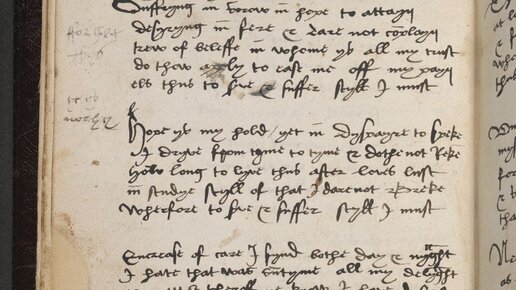 Suffryng in sorow in hope to attayn
desyryng in fere & dare not coplayn
fforget
trew of beleffe in whome ys all my trust
thys
do thow apply to ease me off my payn
els thus to serve & suffer styll I must
yt ys
worhy
Hope ys my hold / yet in dyspayre to speke
I dryve from tyme to tyme & dothe not reke
how long to lyve thus after loves lust
in studye styll of that I dare not breke
wherfore to serve & suffer styll I must
Encrease of care I fynd bothe day & nyght
I hate that was sumtyme all my delyght